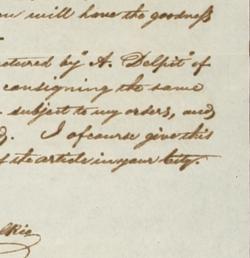 will have the goodness
by A. Delpit of
consigning the same
subject to my orders, and
I ofcourse give this
of the article in your City.